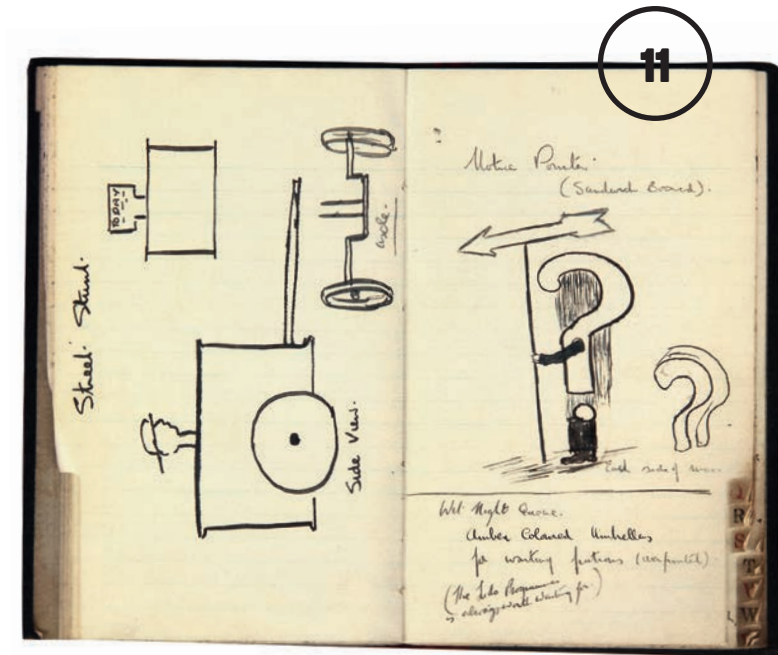 11
Street Stunt.
TODAY
Side View.
axle.
Motive Pointer
(Sandwich Board).
each side of
Wet Night Queue.
Amber Coloured Umbrellas
for waiting patrons
(The Lido Programme
is always worth waiting for.)
R
S
T
V
W